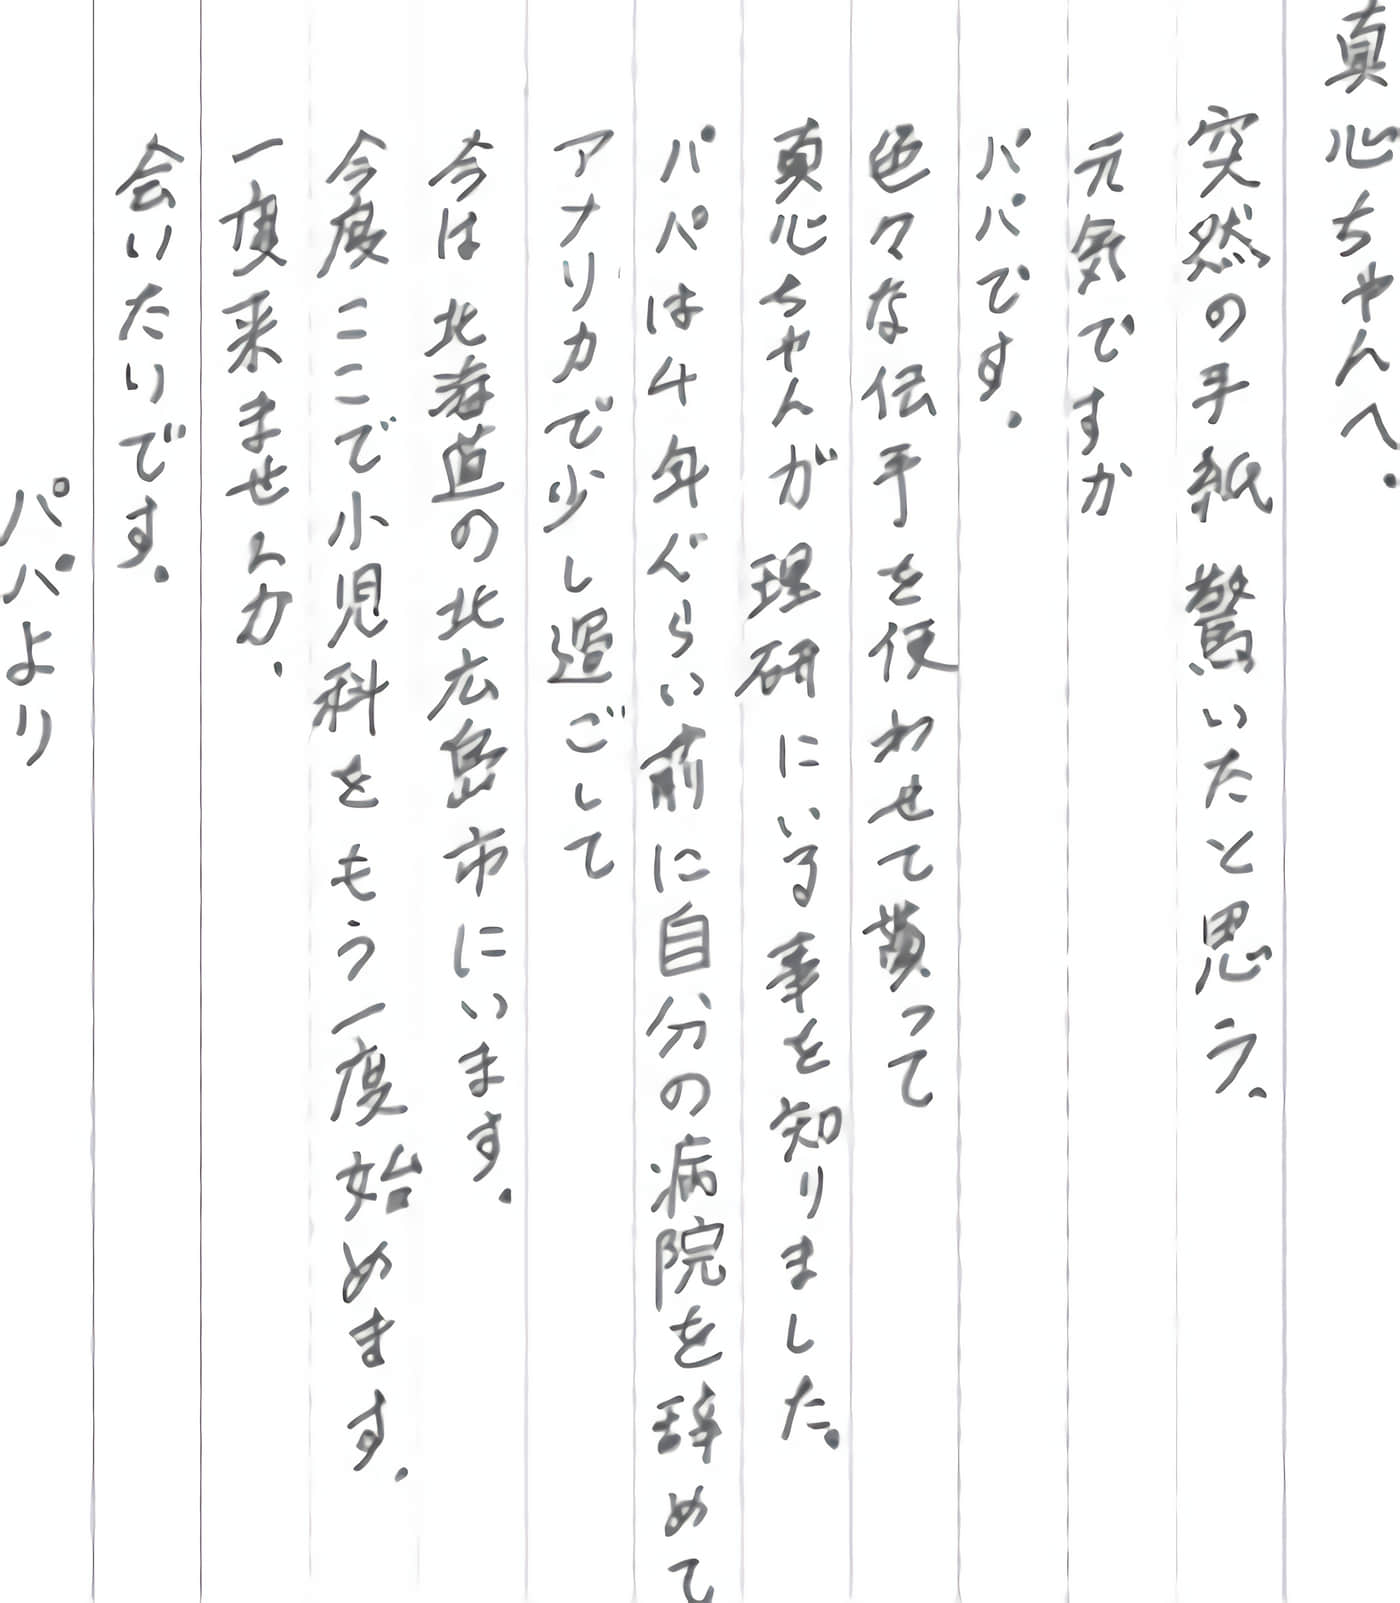 真心ちゃんへ.
突然の手紙驚いたと思う.
元気ですか
パパです.
色々な伝手を使わせて貰って
真心ちゃんが理研にいる事を知りました.
パパは4年ぐらい前に自分の病院を辞めて
アメリカで少し過ごして
今は北海道の北広島市にいます.
今度ここで小児科をもう一度始めます.
一度来ませんか.
会いたいです.
パパより